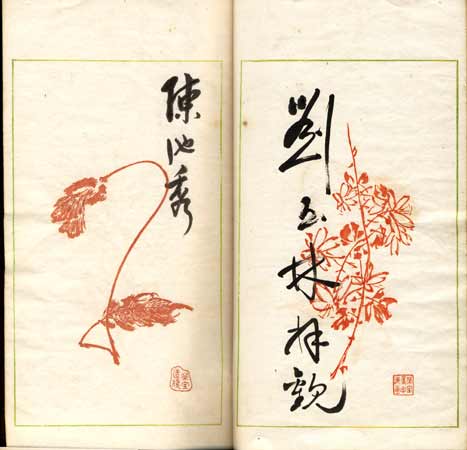 劉玉林拜觀
陳池秀